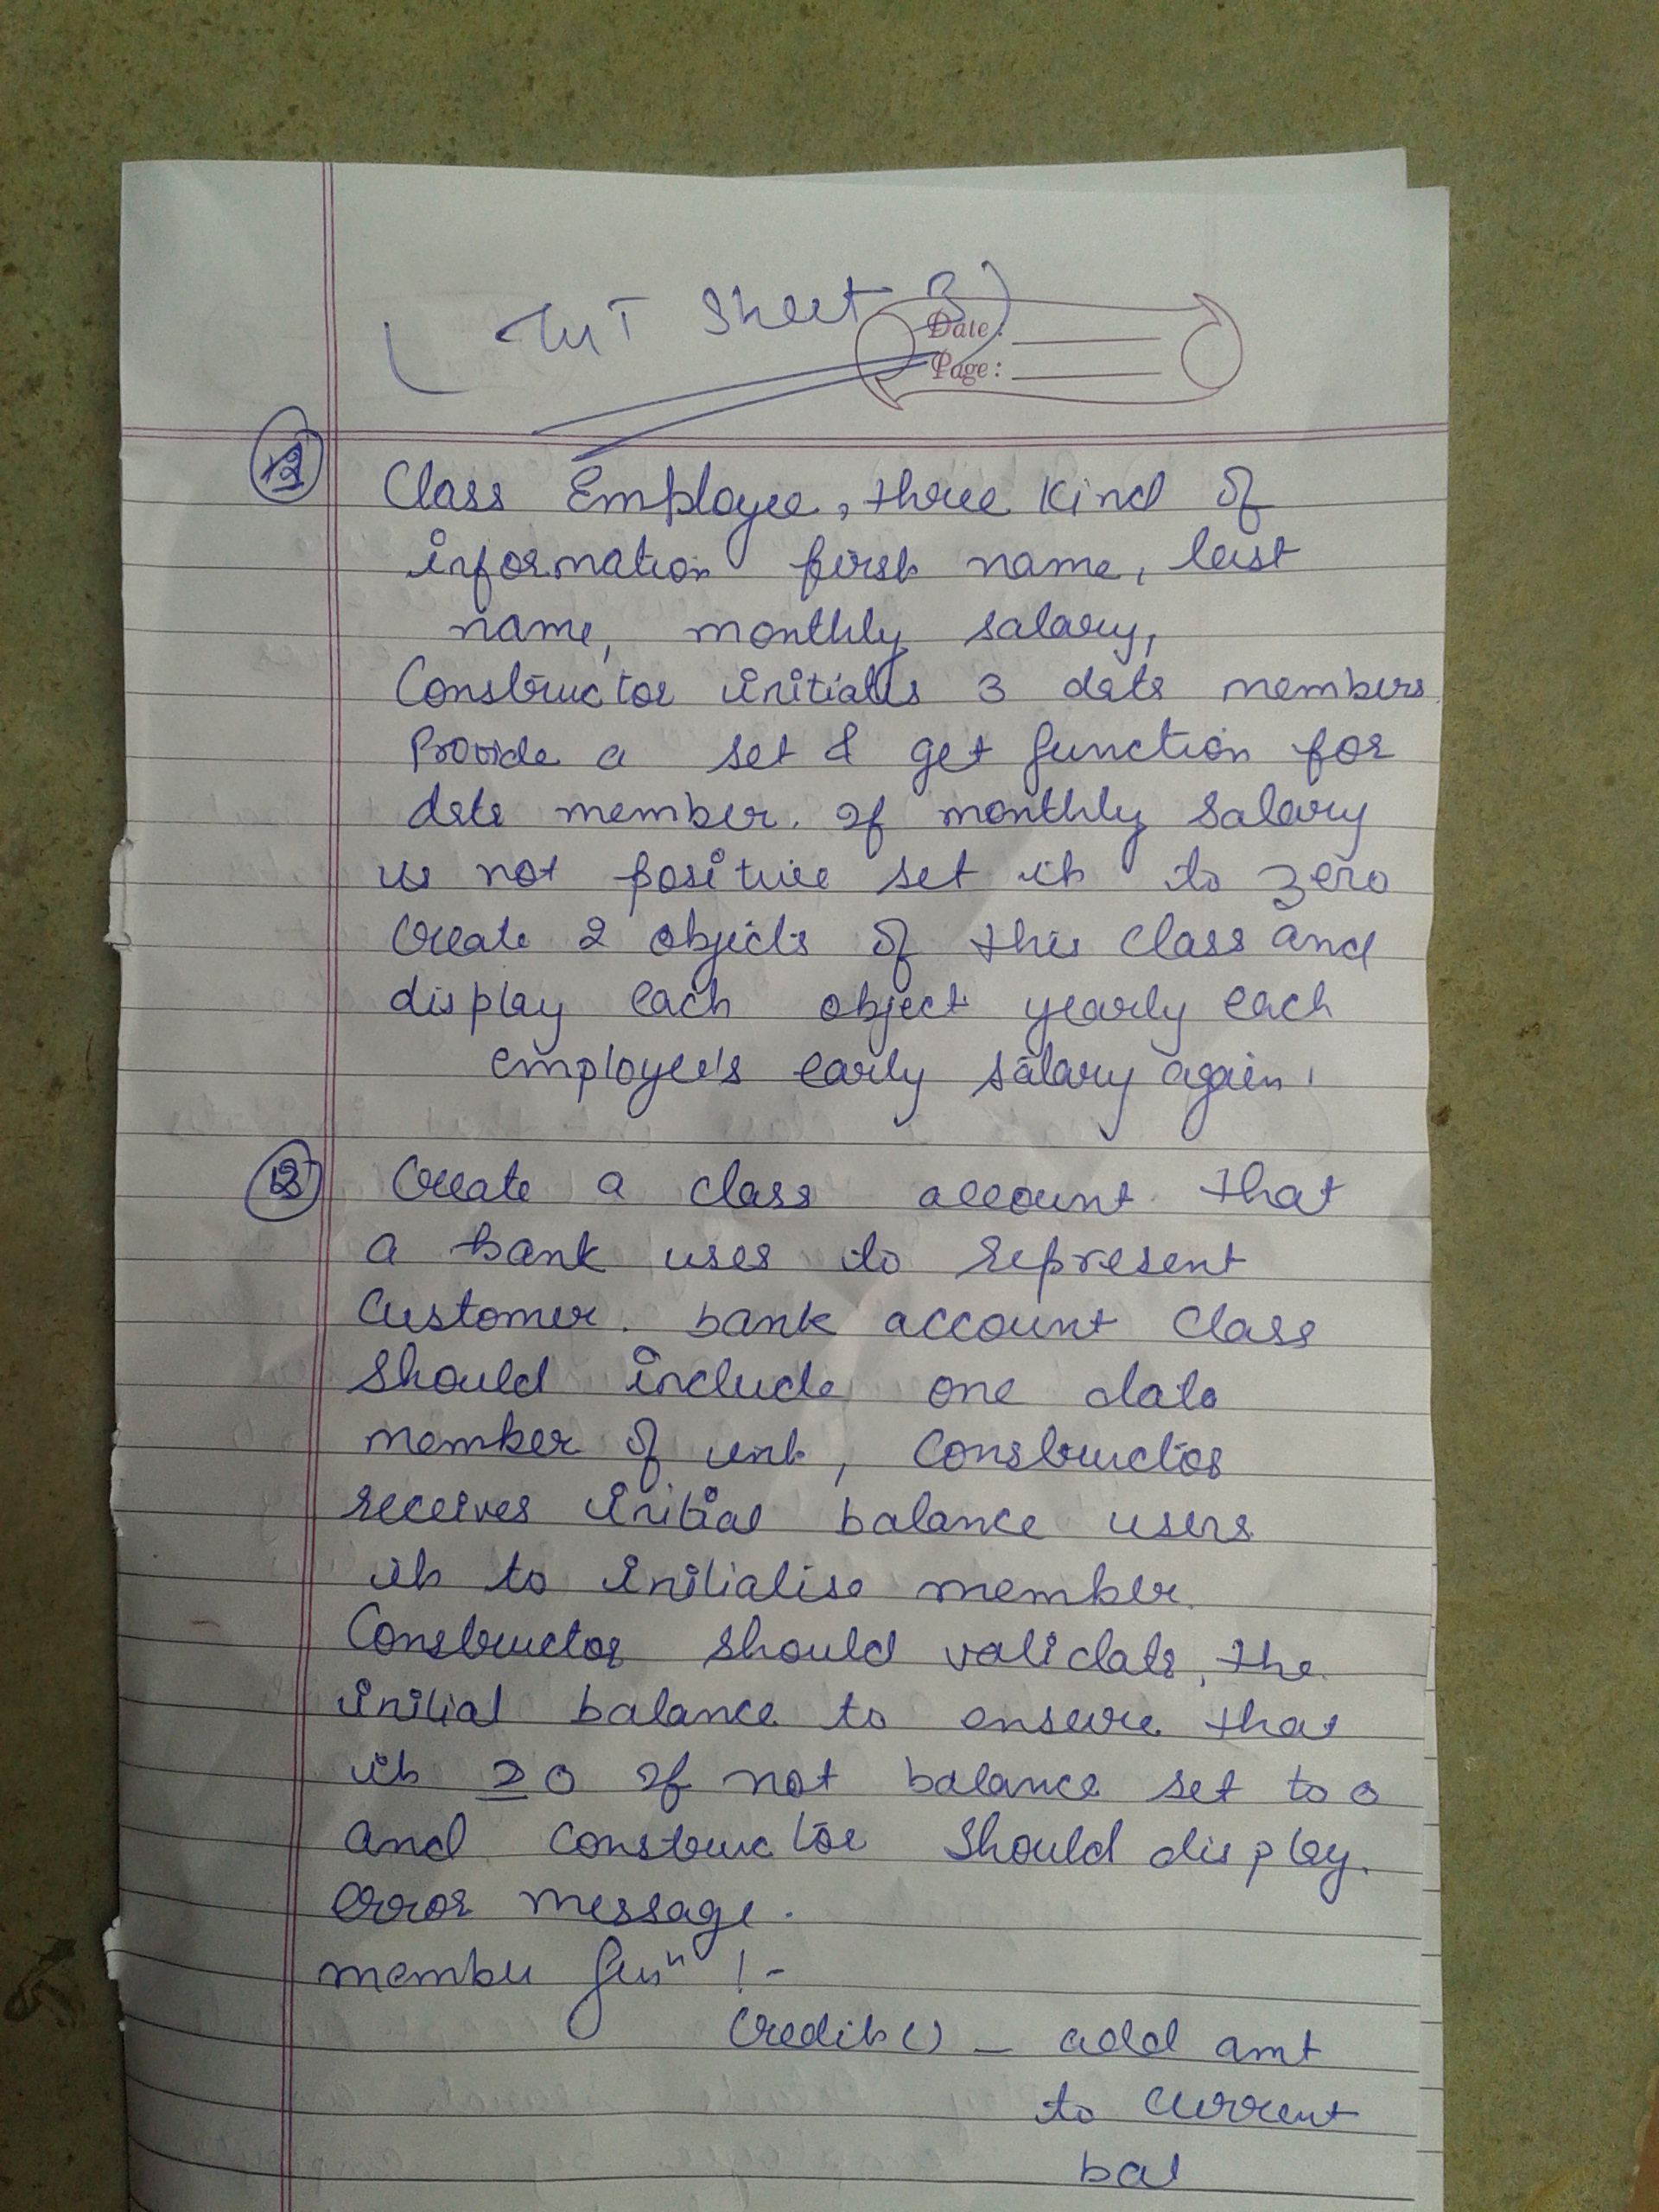 (TUT Sheet 3)
Date:
Page:
Class Employee, three kind of
information first name, last
name, monthly salary,
Constructor initials 3 data members
Provide a set & get function for
data member. If monthly salary
is not positive set it to zero
Create 2 objects of this class and
display each object yearly each
employee's early salary again.
Create a class account that
a bank uses to represent
Customer. bank account class
should include one data
member of int, Constructor
receives initial balance users
it to initialise member.
Constructor should validate, the
initial balance to ensure that
it ≥0 If not balance set to 0
and constructor should display.
error message.
member funⁿ !-
Credit() - add amt
to current
bal